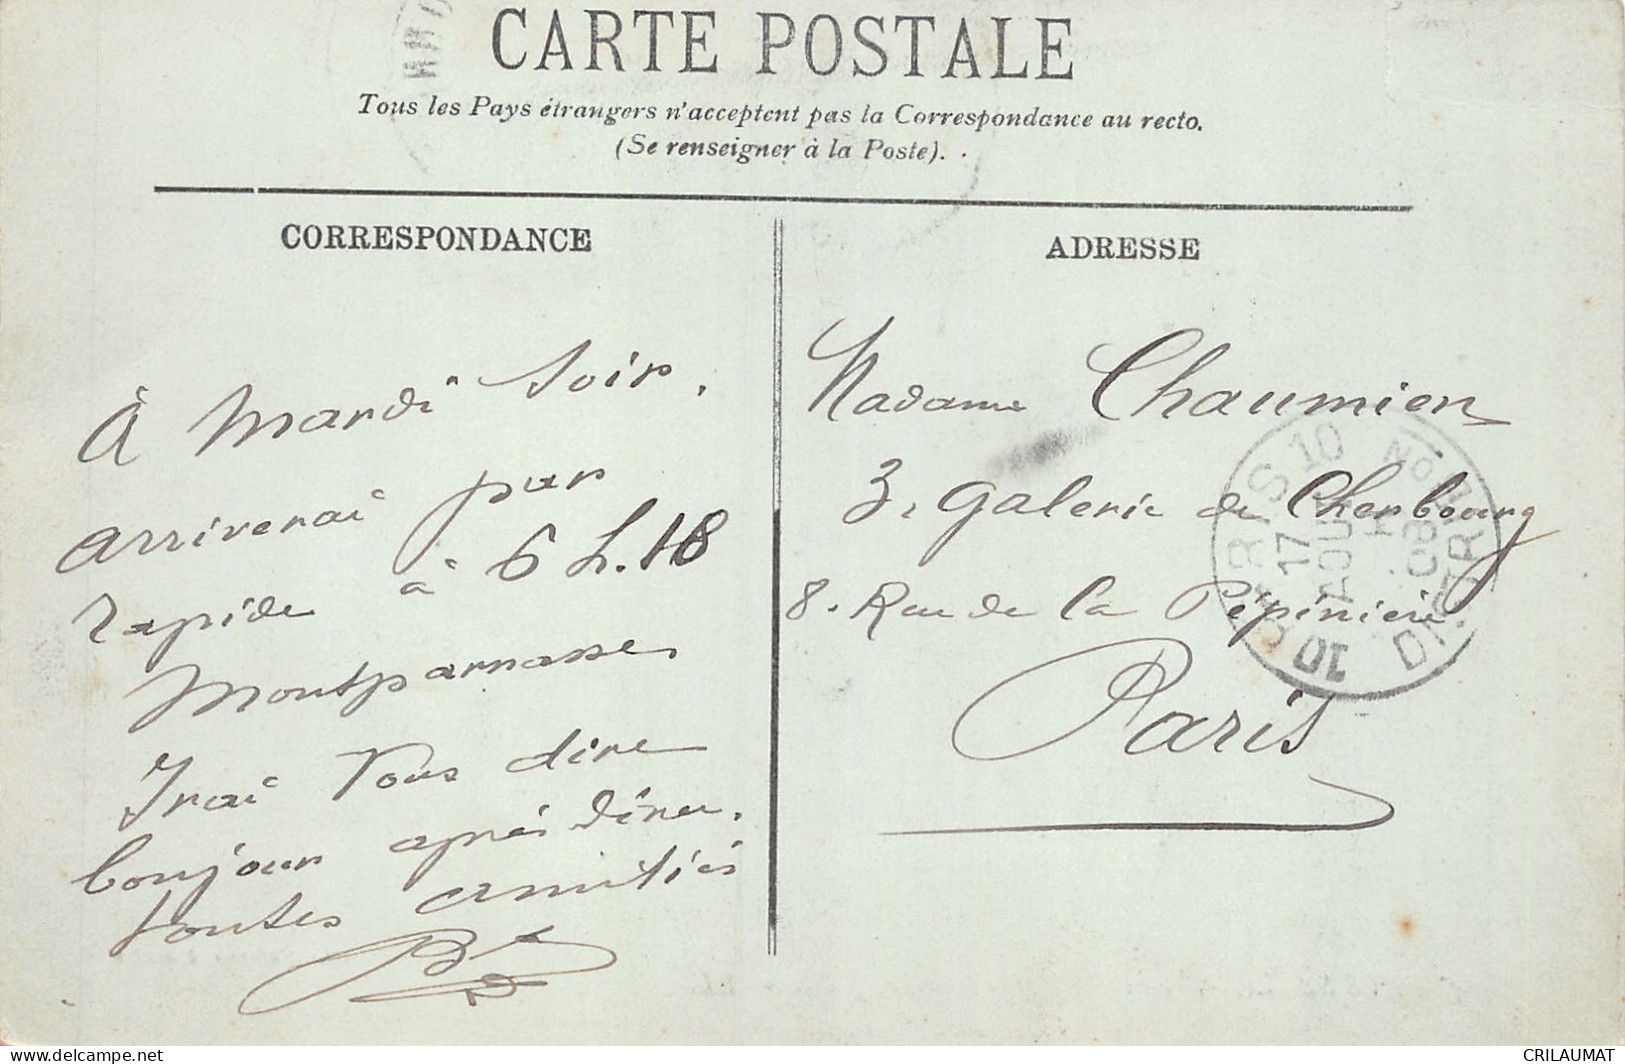 CARTE POSTALE
Tous les Pays étrangers n'acceptent pas la Correspondance au recto.
(Se renseigner à la Poste).
CORRESPONDANCE
À Mardi soir,
arriverai par
rapide à 6 h. 18
Montparnasse,
Irai vous dire
bonjour après dîner.
toutes amitiés
ADRESSE
Madame Chaumien
3, Galerie de Cherbourg
8. Rue de la Pépinière
Paris
PARIS 10
17
AOUT
08
DISTRIBUTION
10
delcampe.net
CRILAUMAT